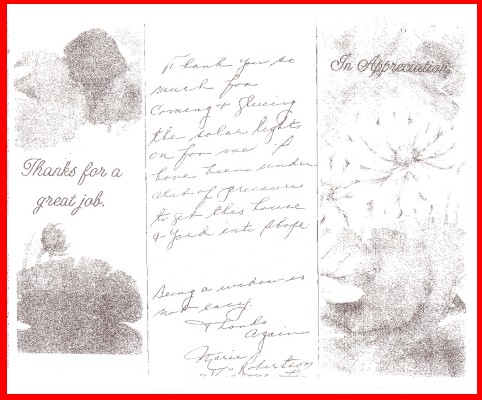 Thanks for a
great job.
Thank you so
much for
coming & gluing
the solar lights
on for me. I
have been under
alot of pressure
to get this house
& yard into shape
Being a widow is
not easy.
Thanks
again
Marie
Robertson
In Appreciation